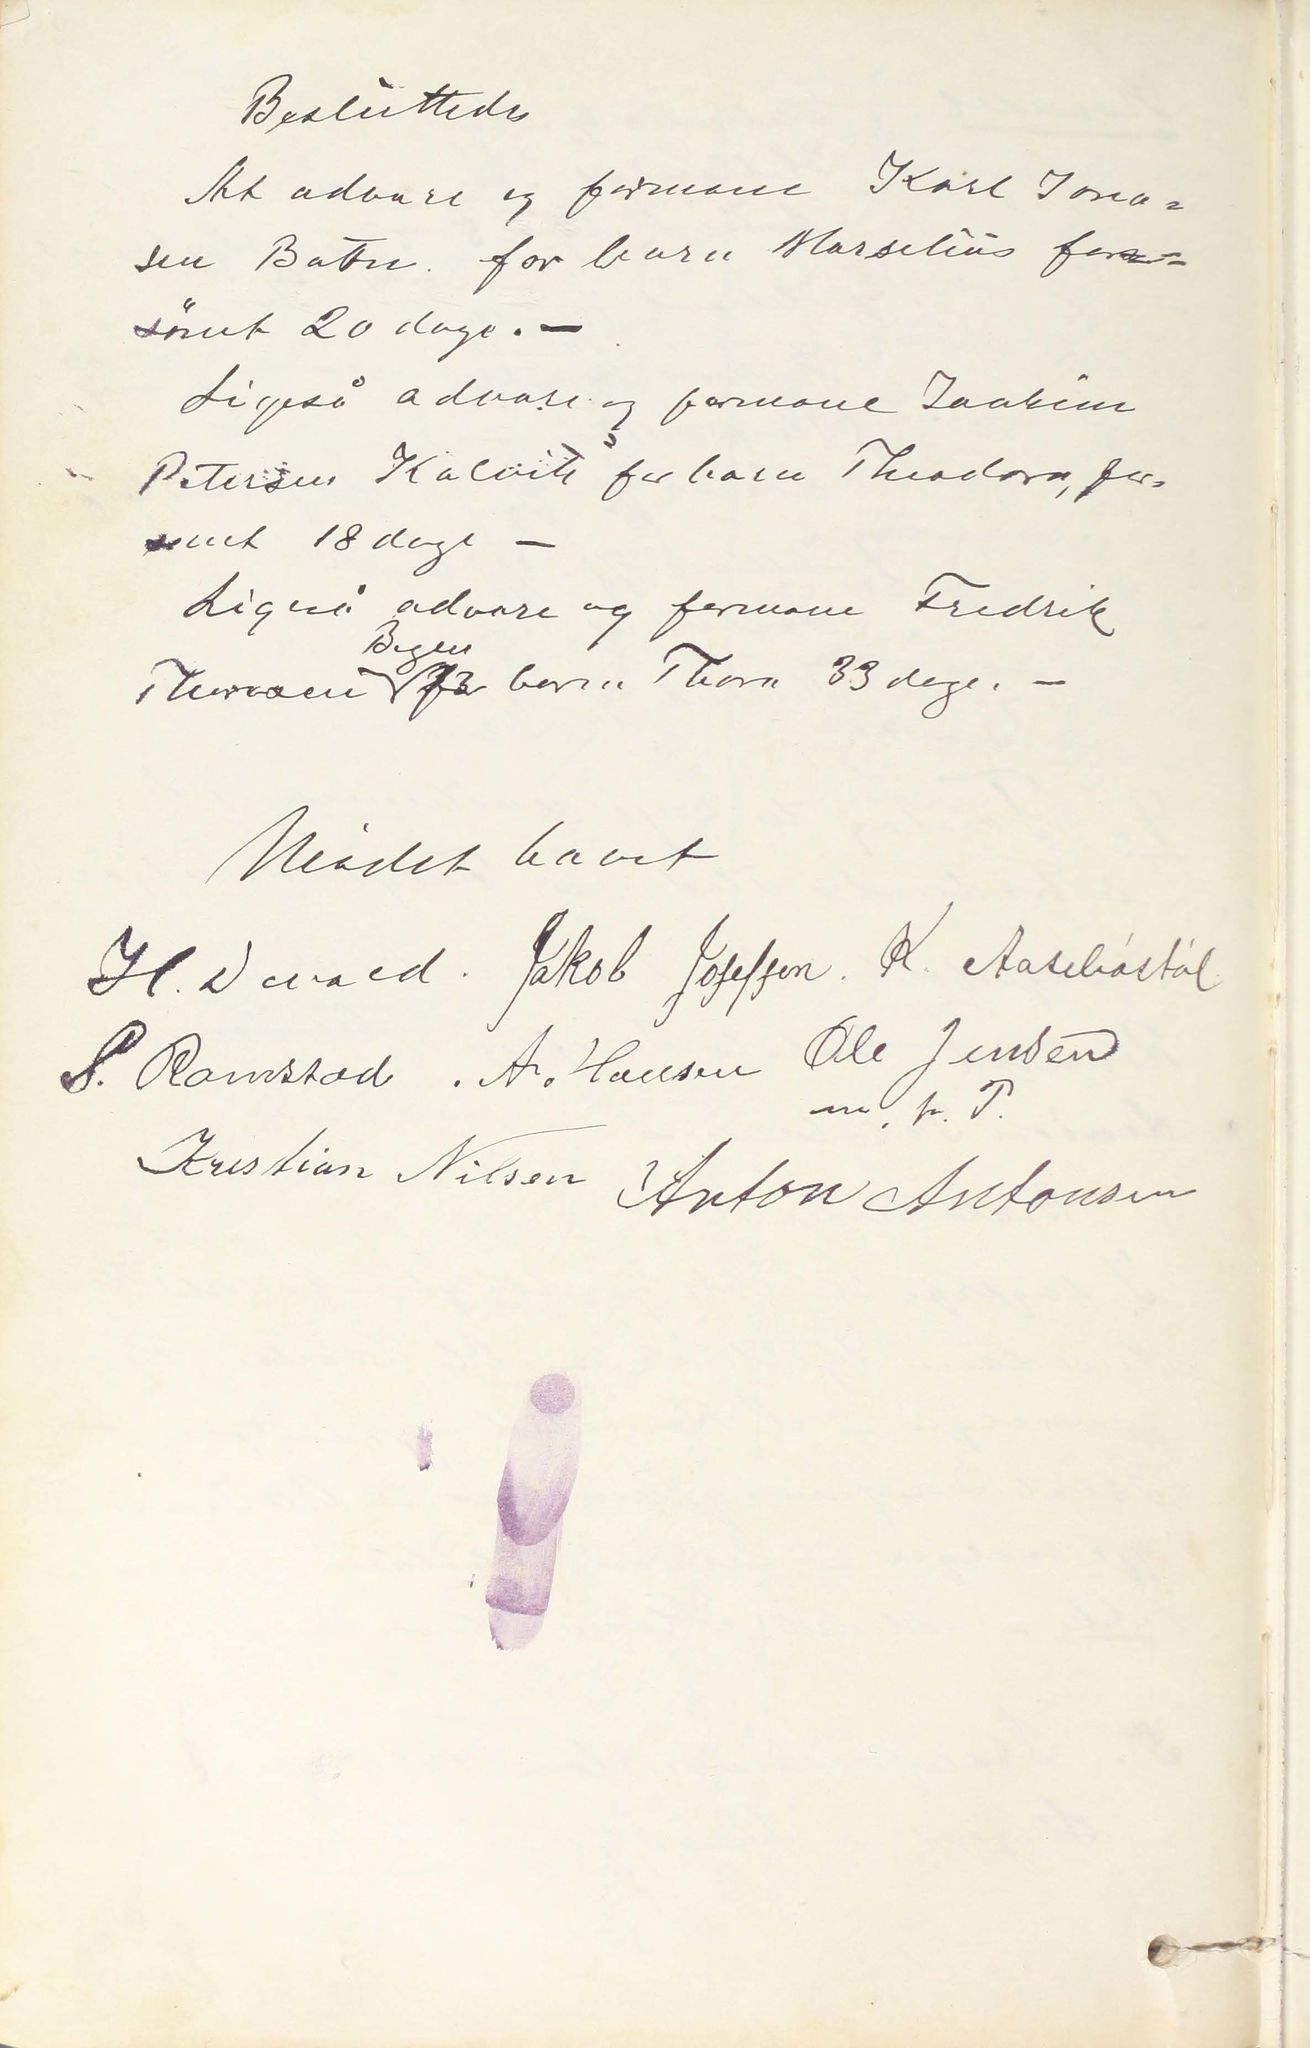 Besluttedes
At advare og formane Karl Jona=
sen Batn. for barn Marselius for=
sömt 20 dage. —
Ligeså advare og formane Joakim
Petersen Kalvik for barn Theodora, for-
sömt 18 dage —
Ligeså advare og formane Fredrik
Bogen
Thomasen for barn Thora 33 dage. —
Mödet hævet
H. Jakob Josefsen. K.
P. Ramstad. A. Hansen Ole Jensen
m. p. P.
Kristian Nilsen Anton Antonsen